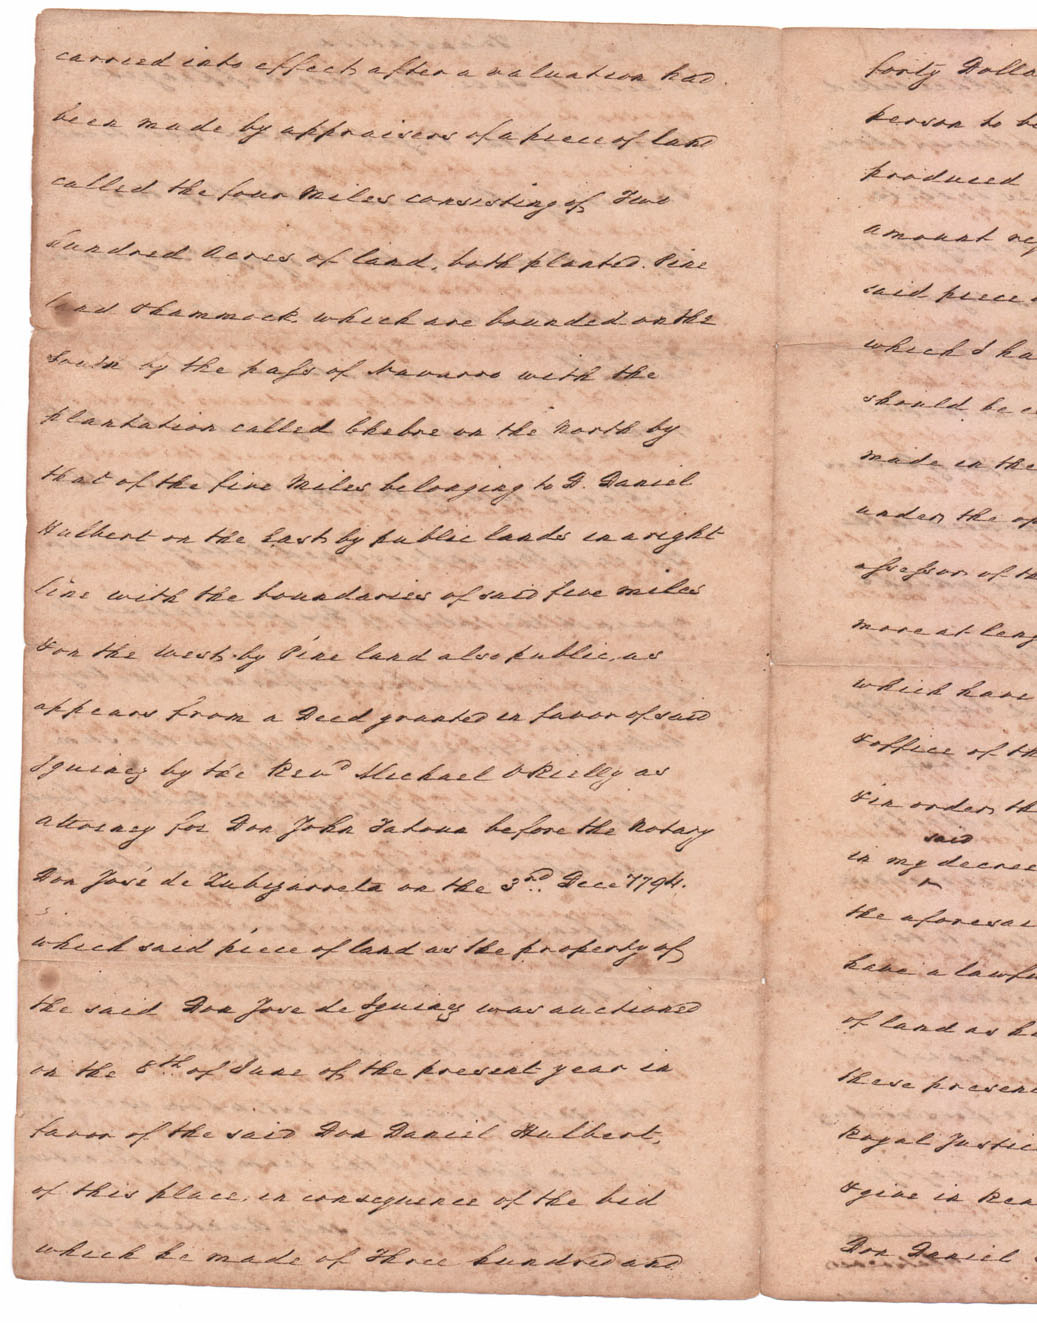 carried into effect, after a valuation had
been made by appraisers of a piece of land
called the four Miles consisting of Two
hundred Acres of land, both planted. Pine
land & hammock, which are bounded on the
South by the pass of Navarro with the
plantation called Chebre on the North by
that of the five Miles belonging to D. Daniel
Hulbert on the East, by public lands in a right
line with the boundaries of said five miles
& on the West, by Pine land also public, as
appears from a Deed granted in favor of said
Iguiniz by the Revd Michael O Rielly as
attorney for Don John before the Notary
Don José de Zubizarreta on the 3rd. Dece 1794.
which said piece of land as the property of
the said Don Jose de Iguiniz was auctioned
on the 8th of June of the present year in
favor of the said Don Daniel Hulbert,
of this place, in consequence of the bid
which he made of Three hundred and
forty Dolla
person to be
produced
amount
said piece
which I ha
should be
made in the
under, the
assessor of th
more at leng
which have
& office of th
& in order, th
said
in my decree
the aforesai
have a lawfu
of land as h
these presen
Royal Justic
& give in Rea
Don Daniel